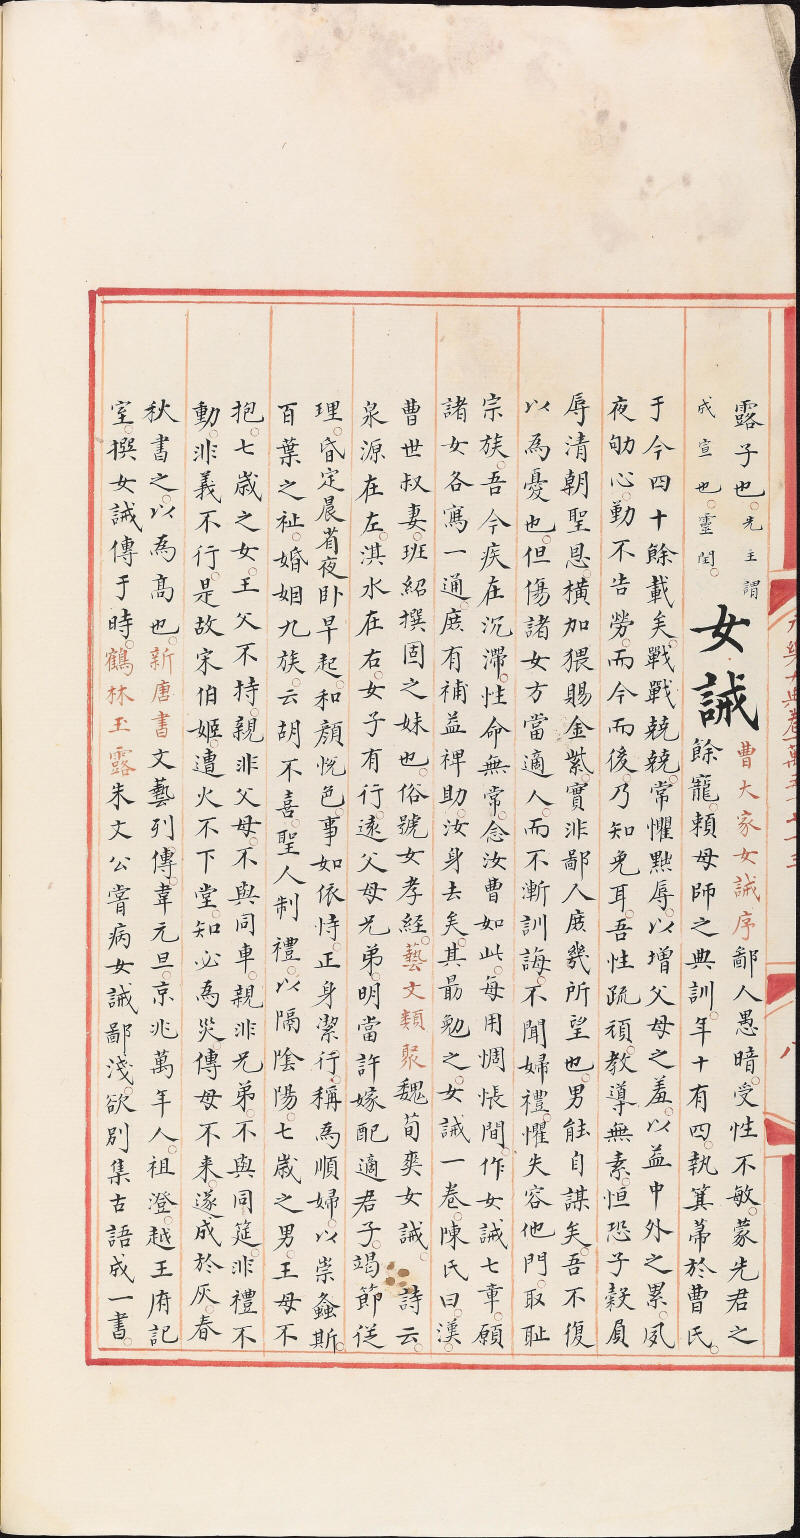 永樂大典卷一萬五千七十三
八
露子也。先主謂
成宣也。靈閏。
女誡
曹大家女誡序鄙人愚暗。受性不敏。蒙先君之
餘寵。賴母師之典訓。年十有四。執箕帚於曹氏。
于今四十餘載矣。戰戰兢兢。常懼黜辱。以增父母之羞。以益中外之累。夙
夜劬心。勤不告勞。而今而後。乃知免耳。吾性疏頑。教導無素。恒恐子穀負
辱清朝聖恩。橫加猥賜金紫。實非鄙人庶幾所望也。男能自謀矣。吾不復
以為憂也。但傷諸女方當適人。而不漸訓誨。不聞婦禮。懼失容他門。取恥
宗族。吾今疾在沉滯。性命無常。念汝曹如此。每用惆悵。間作女誡七章。願
諸女各寫一通。庶有補益裨助。汝身去矣。其最勉之。女誡一卷。陳氏曰。漢
曹世叔妻。班紹撰。固之妹也。俗號女孝經。藝文類聚魏荀爽女誡。詩云。
泉源在左。淇水在右。女子有行。遠父母兄弟。明當許嫁。配適君子。竭節從
理。昏定晨省。夜卧早起。和顏悅色。事如依恃。正身潔行。稱為順婦。以崇螽斯。
百葉之祉。婚姻九族。云胡不喜。聖人制禮。以隔陰陽。七歲之男。王母不
抱。七歲之女。王父不持。親非父母。不與同車。親非兄弟。不與同筵。非禮不
動。非義不行。是故宋伯姬。遭火不下堂。知必為災。傳母不来。遂成於灰。春
秋書之。以為高也。新唐書文藝列傳。韋元旦。京兆萬年人。祖澄。越王府記
室。撰女誡傳于時。鶴林玉露朱文公嘗病女誡鄙淺。欲別集古語成一書。